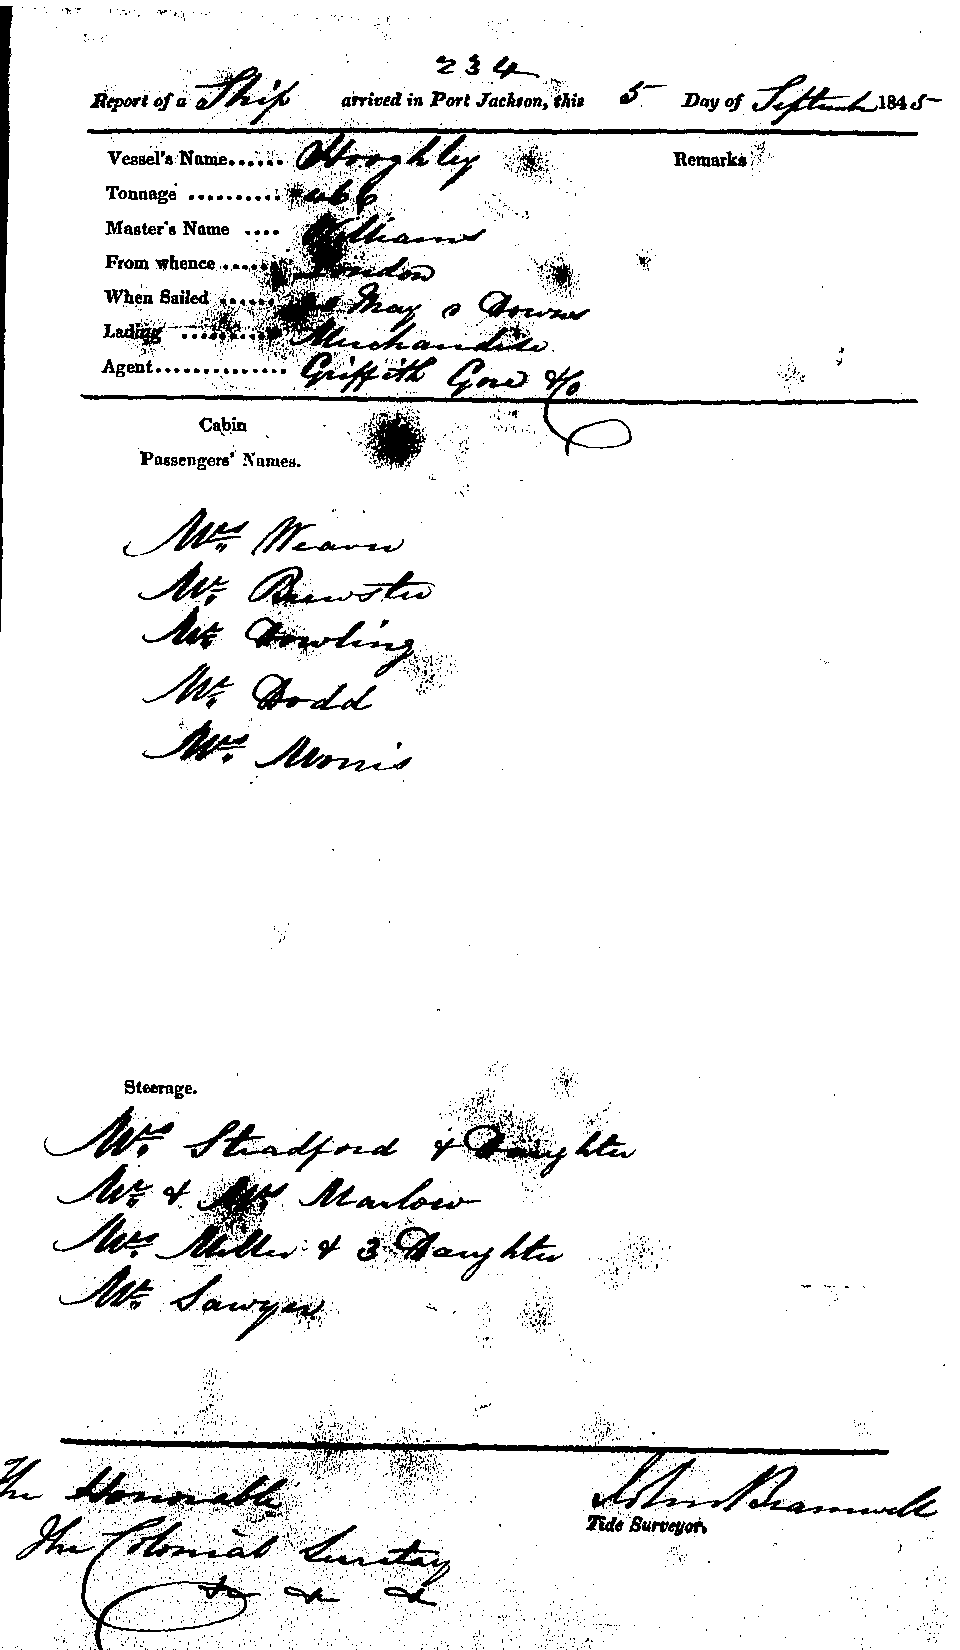 234
Report of a Ship arrived in Port Jackson, this 5 Day of September 1845
Vessel's Name...... Hooghley Remarks
Tonnage .......... 466
Master's Name .... Williams
From whence ...... London
When Sailed ...... May Downs
Lading .......... Merchandise
Agent.............. Griffith Gore & Co
Cabin
Passengers' Names.
Mrs Weaver
Mr. Brewster
Mr. Dowling
Mr. Dodd
Mrs Morris
Steerage.
Mrs. Stradford & Daughter
Mr. & Mrs Marlow
Mrs. Miller & 3 Daughter
Mr. Sawyer
The Honorable John Bramwell
Tide Surveyor.
The Colonial Secretary
& & &